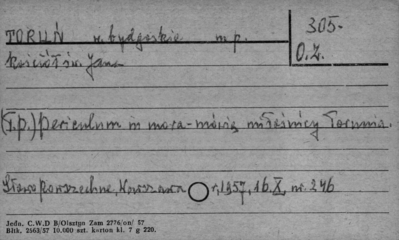 TORUŃ w. bydgoskie m.p.
305.
O.Z.
kościół św. Jana
(T.p.) periculum in mora - mówią miłośnicy Torunia.
Słowo Powszechne, Warszawa r. 1957, 16.X, nr. 246
Jedn. C.W.D B/Olsztyn Zam 2776/on/ 57
Bltk. 2563/57 10.000 szt. karton kl. 7 g 220.